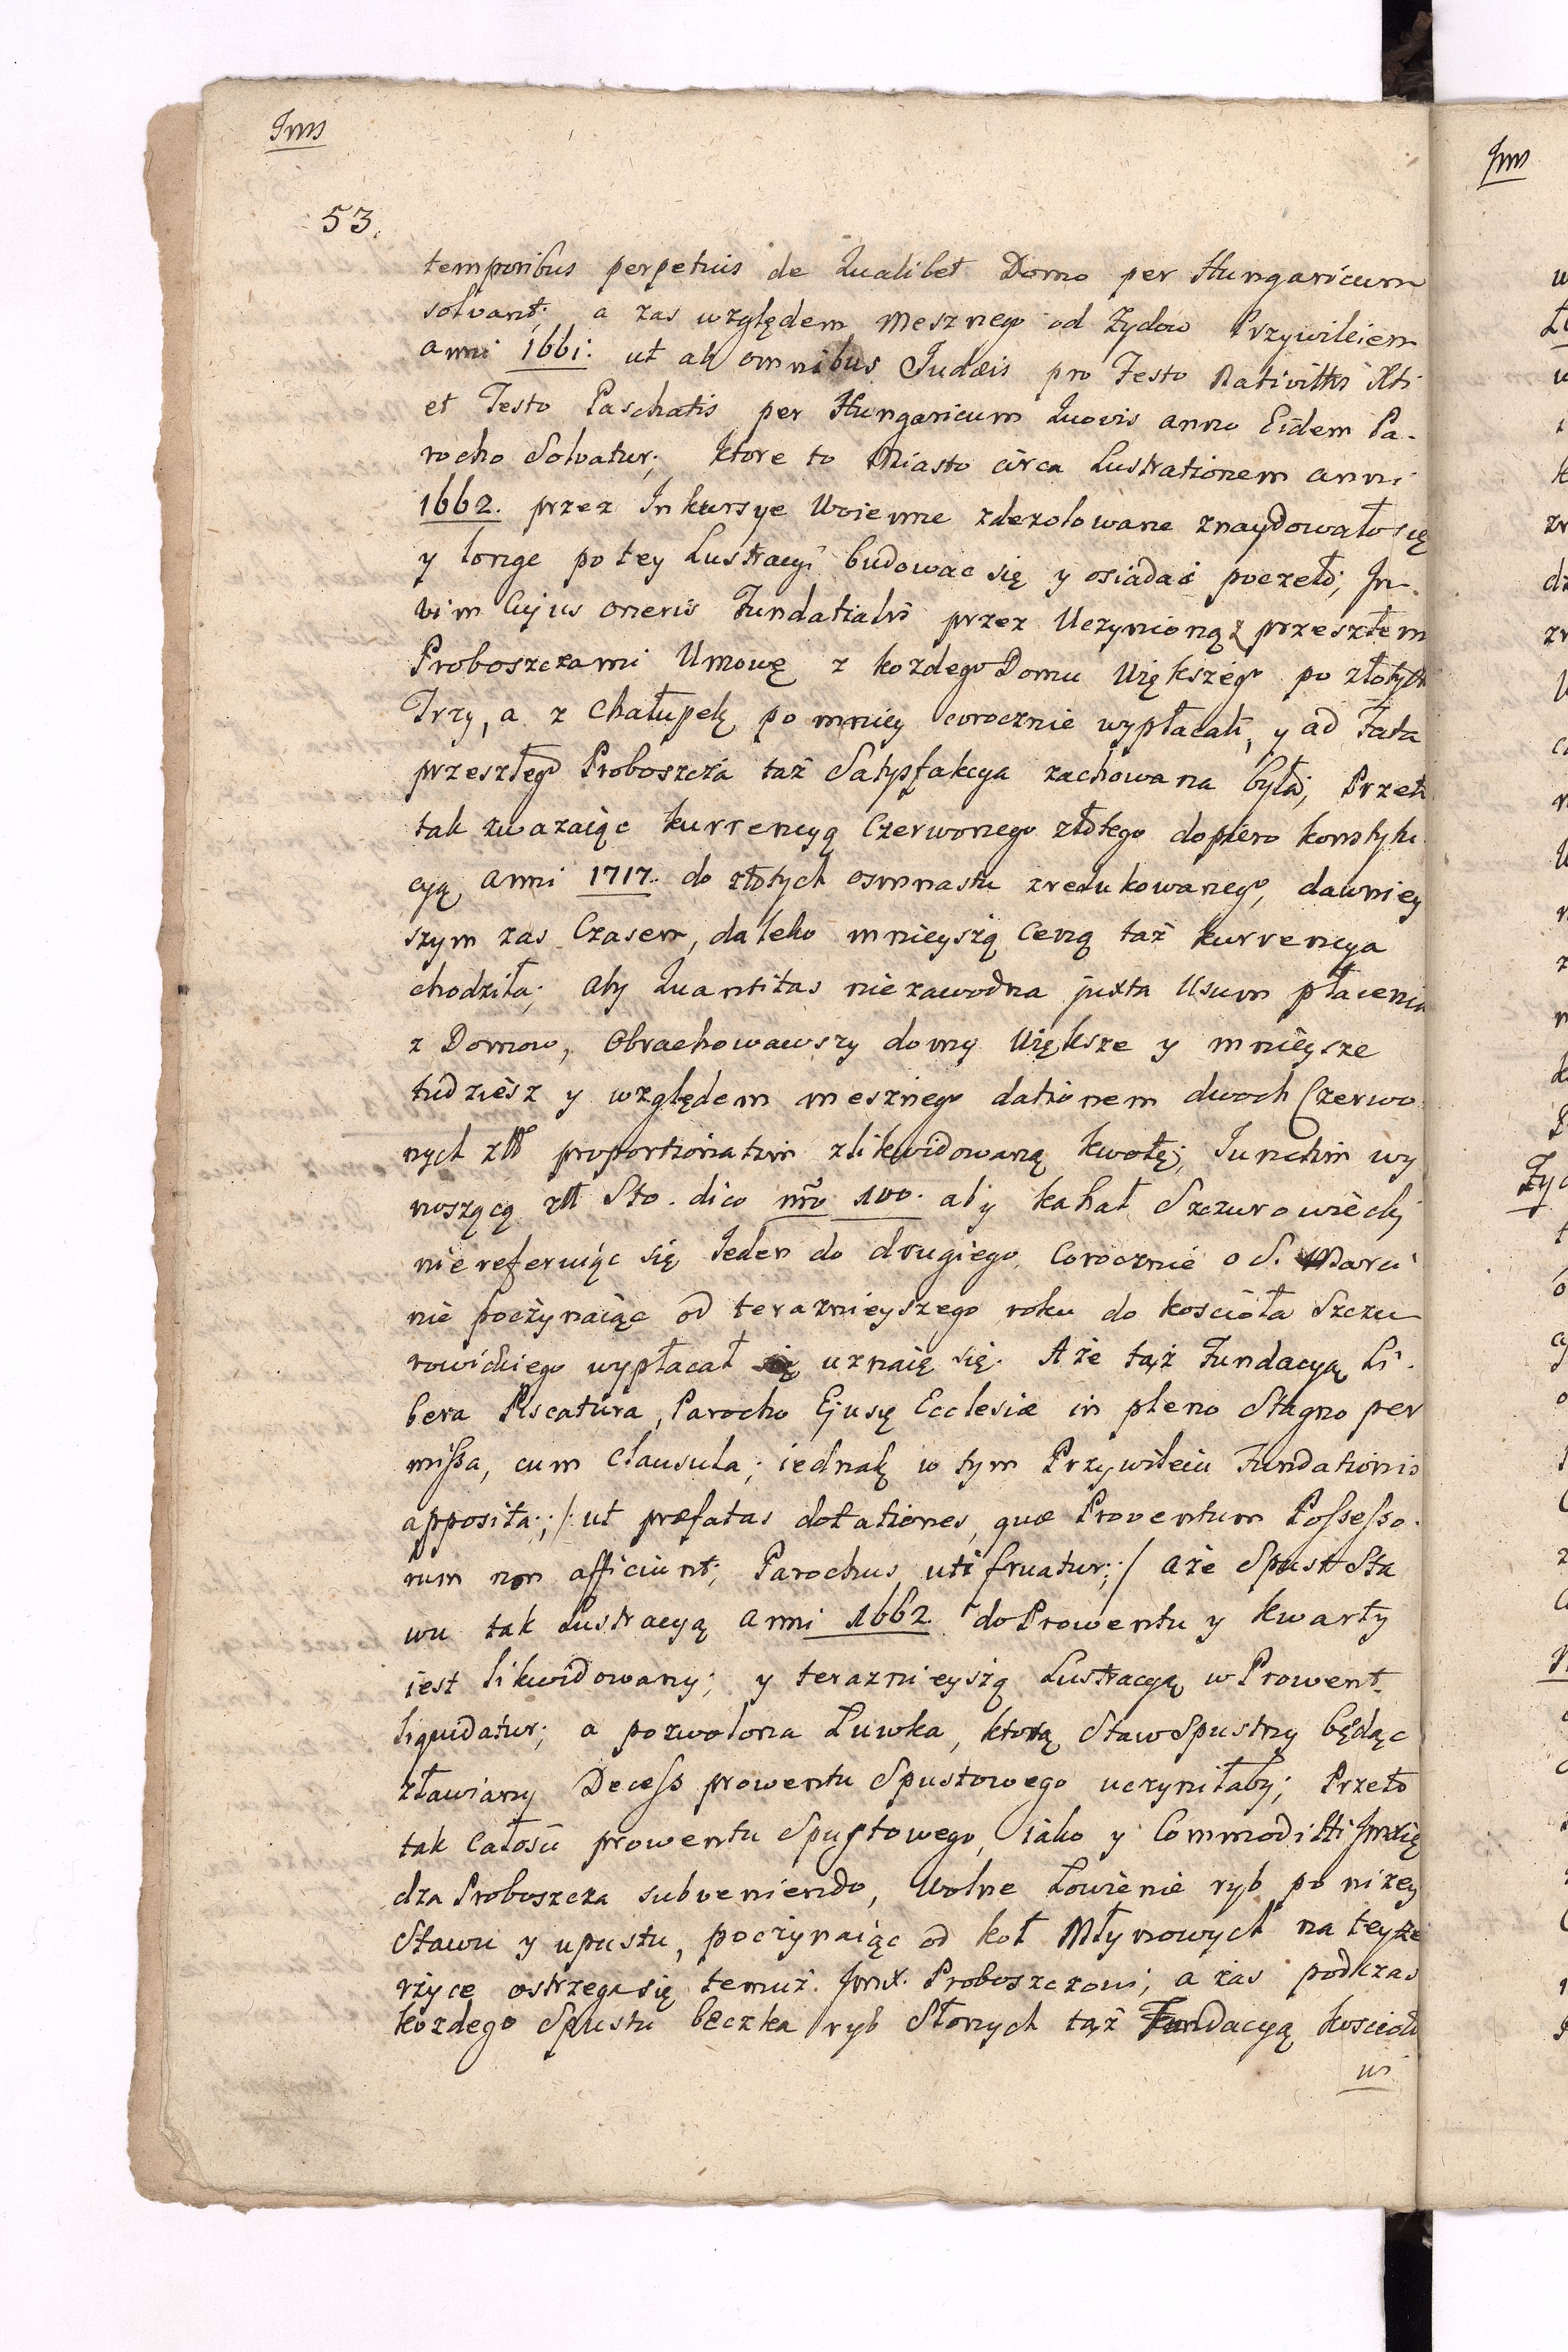 Jms
53.
temporibus perpetuis de Qualibet Domo per Hungaricum
solvant; a zas względem Mesznego od Zydow Przywileiem
anni 1661. ut ab omnibus Judæis pro Festo Nativittis Xti
et Festo Paschatis per Hungaricum Quovis anno Eidem Pa-
rocho Solvatur; ktore to Miasto circa Lustrationem anni
1662. przez Inkursye Woienne zdezolowane znaydowało się
y longe po tey Lustracyi budowac się y osiadać poczeło; In
vim Cujus oneris Fundatialis przez Uczynioną z przeszłem
Proboszczami Umowę z kozdego Domu Większego po złotych
Trzy, a z Chałupek po mniey corocznie wypłacali, y ad Fata
przeszłego Proboszcza taż Satysfakcya zachowana była; Przeto
tak zwazaiąc kurrencyą Czerwonego złotego dopiero konstytu
cyą Anni 1717. do złotych osmnastu zredukowanego, dawniey
szym zas Czasem, daleko mnieyszą Ceną taż kurrencya
chodziła; aby Quantitas niezawodna juxta Usum płacenia
z Domow, Obrachowawszy domy Większe y mnieysze
tudziesz y względem mesznego dationem dwoch Czerwo
nych złł proportionatim zlikwidowaną kwotę; Junctim wy
noszącą złł Sto. dico nro 100. aby kahał Szczurowiecki
niereferuiąc się Jeden do drugiego, Corocznie o S. Marci
nie poczynaiąc od terazneyszego roku do kościoła Szczu
rowickiego wypłacał uznaię się. A że tąż Fundacyą Li-
bera Piscatura, Parocho Ejusq Ecclesiæ in pleno Stagno per
missa, cum Clausula; iednak w tym Przywileiu Fundationis
apposita; /: ut præfatas dotationes, quæ Proventum Possesso-
rum non afficiunt; Parochus uti fruatur; :/ aże Spust Sta
wu tak Lustracyą anni 1662. do Prowentu y kwarty
iest likwidowany; y teraznieyszą Lustracyą w Prowent
liquidatur; a pozwolona Łuwka, ktorą Staw Spustny będąc
zławiany Decess prowentu Spustowego uczyniłaby; Przeto
tak Całosci prowentu Spustowego, iako y Commoditti Jmxię
dza Proboszcza subveniendo, Wolne Łowienie ryb poniżey
Stawu y upustu, poczynaiąc od koł Młynowych na teyże
rzyce ostrzega się temuż Jmx. Proboszczowi; a zas podczas
kozdego Spustu beczka ryb Słonych tąż Fundacyą kosciało
wi
Jms